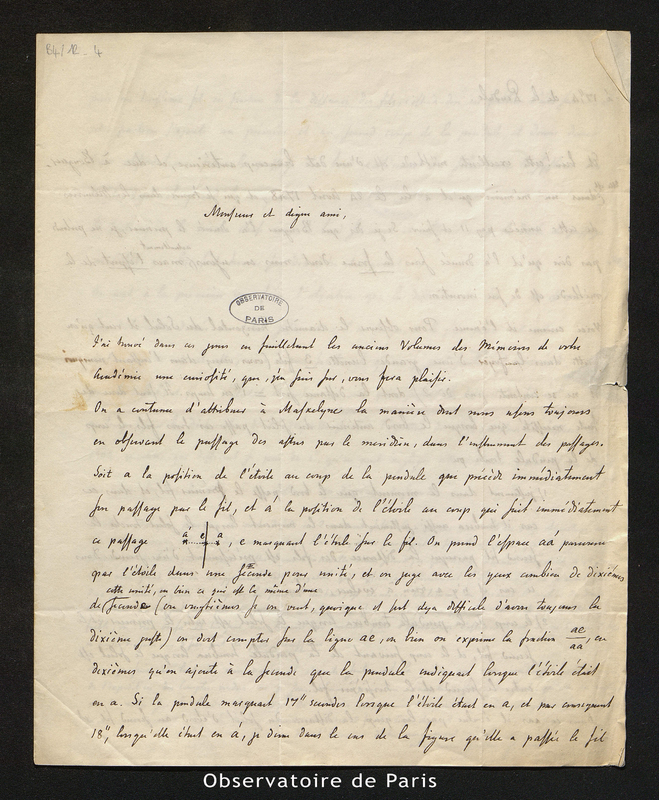 B4/12-4
Monsieur et digne ami,
OBSERVATOIRE
DE
PARIS
J'ai trouvé dans ces jours en feuilletant les anciens Volumes des Mémoires de votre
Académie une curiosité, que, j'en suis sur, vous fera plaisir.
On a coutume d'attribuer à Maskelyne la manière dont nous usons toujours
en observant le passage des astres par le meridien, dans l'instrument des passages.
Soit a la position de l'étoile au coup de la pendule que précède immédiatement
son passage par le fil, et á la position de l'étoile au coup qui suit immédiatement
ce passage á e a , e marquant l'étoile sur le fil. On prend l'espace aá parcouru
par l'étoile dans une seconde pour unité, et on juge avec les yeux combien de dixièmes
cette unité, ou bien ce qui est le même d'une
de seconde (ou vingtièmes si on veut, quoique il soit deja difficile d'avoir toujours la
dixième juste) on doit compter sur la ligne ae, ou bien on exprime la fraction ae/aa, en
dixièmes qu'on ajoute à la seconde que la pendule indiquait lorsque l'étoile était
en a. Si la pendule marquait 17" secondes lorsque l'étoile était en a, et par conséquent
18", lorsqu'elle était en á, je dirai dans le cas de la figure qu'elle a passée le fil
Observatoire de Paris